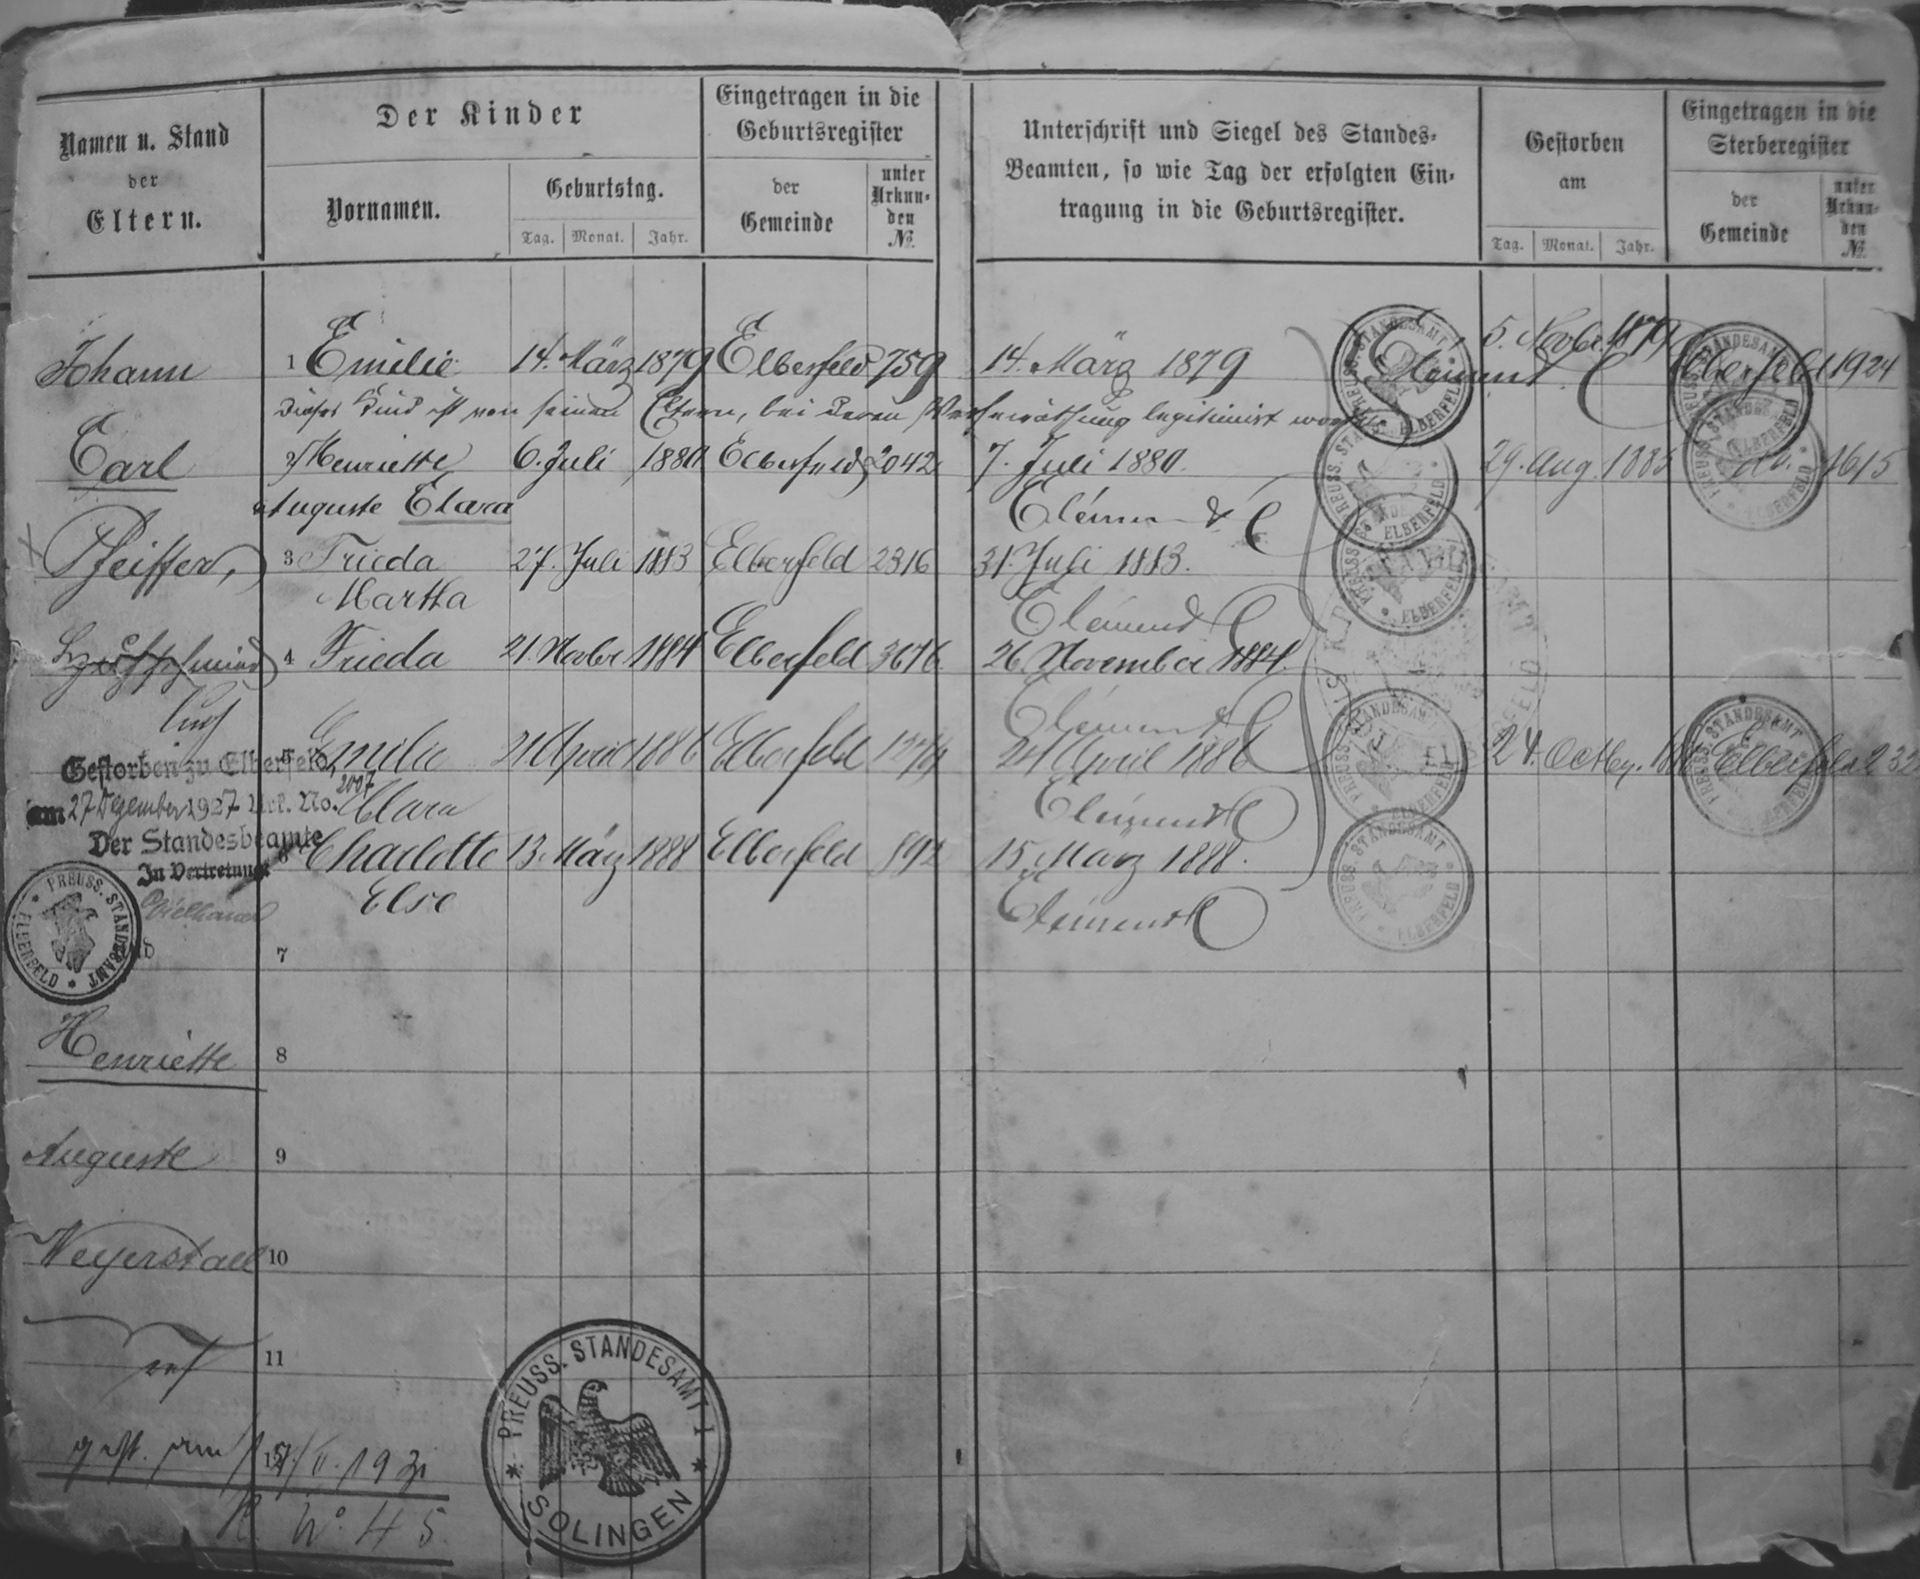 Namen u. Stand
der
Eltern.
Der Kinder
Vornamen.
Geburtstag.
Tag. Monat. Jahr.
Eingetragen in die
Geburtsregister
der
Gemeinde
unter
Urkun-
den
No.
Unterschrift und Siegel des Standes-
Beamten, so wie Tag der erfolgten Ein-
tragung in die Geburtsregister.
Gestorben
am
Tag. Monat. Jahr.
Eingetragen in die
Sterberegister
der
Gemeinde
unter
Urkun-
den
No.
Johann
1 Emilie 14. März 1879 Elberfeld 759 14. März 1879 5. Novbr 1879 Elberfeld 1924
Dieses Kind ist von seinen Eltern, bei deren Verheirathung legitimirt worden.
Carl
2 Henriette 6. Juli 1880 Elberfeld 2042 7. Juli 1880. 29. Aug. 1883 do. 1615
Auguste Clara
Pfeiffer,
3 Frieda 27. Juli 1883 Elberfeld 2316 31. Juli 1883.
Martha
4 Frieda 21. Novbr 1884 Elberfeld 3676 26. November 1884.
und
5 Emilie 21 April 1886 Elberfeld 24 April 1886 24. Elberfeld
Clara
Gestorben zu Elberfeld,
am 27 Dezember 1927 Urk. No. 2007
Der Standesbeamte
In Vertretung:
6 Charlotte 13. März 1888 Elberfeld 892 15. März 1888.
Else
7
Henriette
8
Auguste
9
Weyerstall
10
11
gest. am
12
No. 45
PREUSS. STANDESAMT
ELBERFELD
PREUSS. STANDESAMT I
SOLINGEN